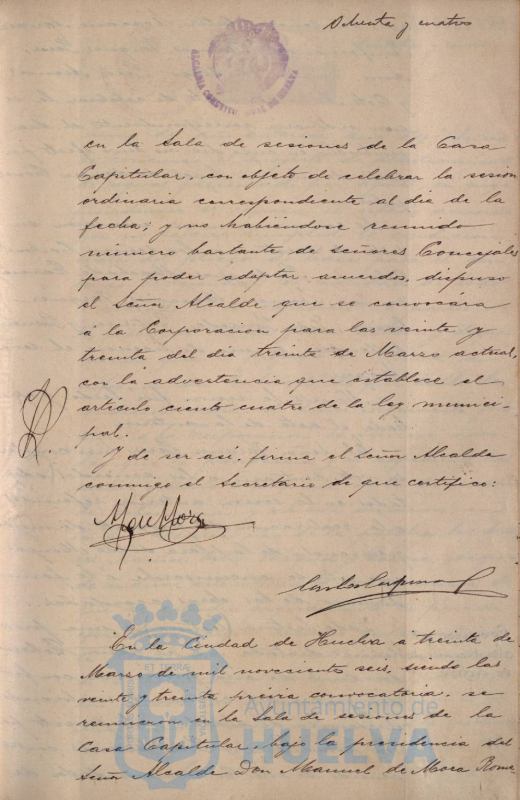 Ochenta y cuatro
ALCALDIA CONSTITUCIONAL DE HUELVA
en la Sala de sesiones de la Casa
Capitular, con objeto de celebrar la sesion
ordinaria correspondiente al dia de la
fecha; y no habiéndose reunido
número bastante de señores Concejales
para poder adoptar acuerdos, dispuso
el señor Alcalde que se convocara
á la Corporacion para las veinte y
treinta del dia treinta de Marzo actual,
con la advertencia que establece el
artículo ciento cuatro de la ley munici-
pal.
Y de ser así, firma el señor Alcalde
conmigo el Secretario de que certifico:
M. de Mora
En la Ciudad de Huelva á treinta de
Marzo de mil novecientos seis, siendo las
veinte y treinta prévia convocatoria, se
reunieron en la Sala de sesiones de la
Casa Capitular, bajo la presidencia del
Señor Alcalde Don Manuel de Mora Rome-
Ayuntamiento de
HUELVA